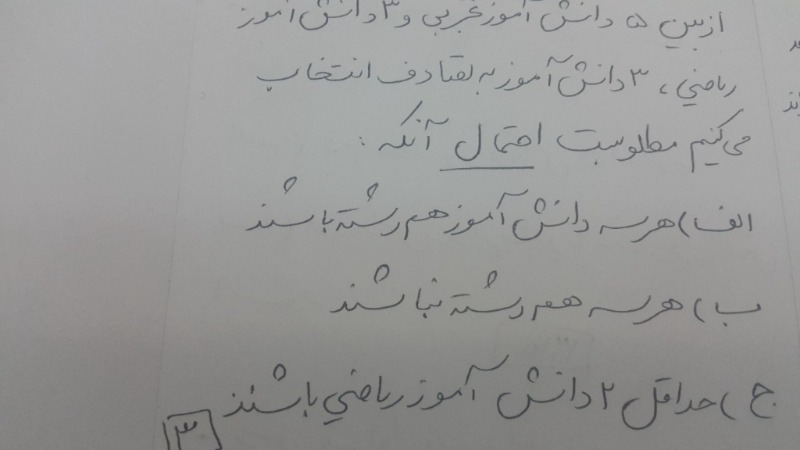 از بین ۵ دانش آموز تجربی و ۳ دانش آموز
ریاضی، ۳ دانش آموز به تصادف انتخاب
می‌کنیم مطلوبست احتمال آنکه :
الف) هر سه دانش آموز هم رشته باشند
ب) هر سه هم رشته نباشند
ج) حداقل ۲ دانش آموز ریاضی باشند
۳